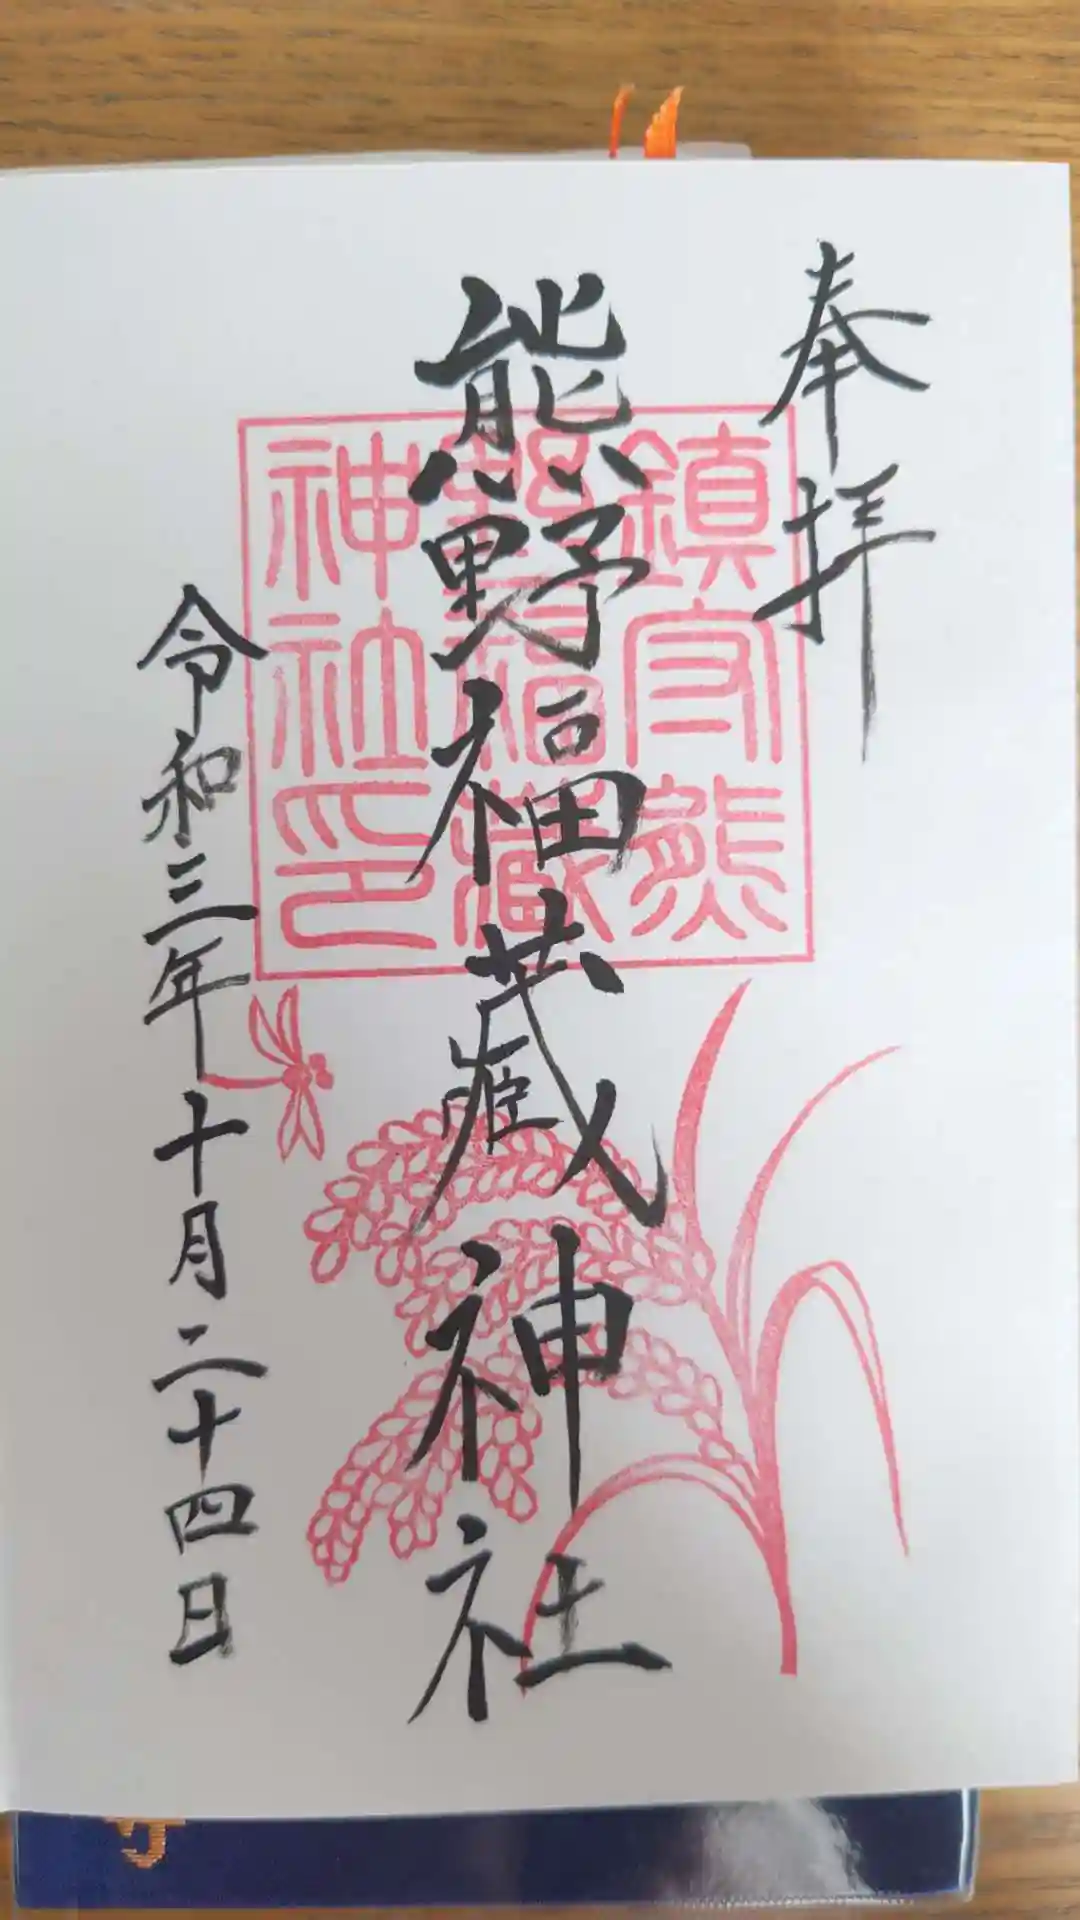 奉拝
熊野福蔵神社
令和三年十月二十四日
鎮守熊
野福蔵
神社印